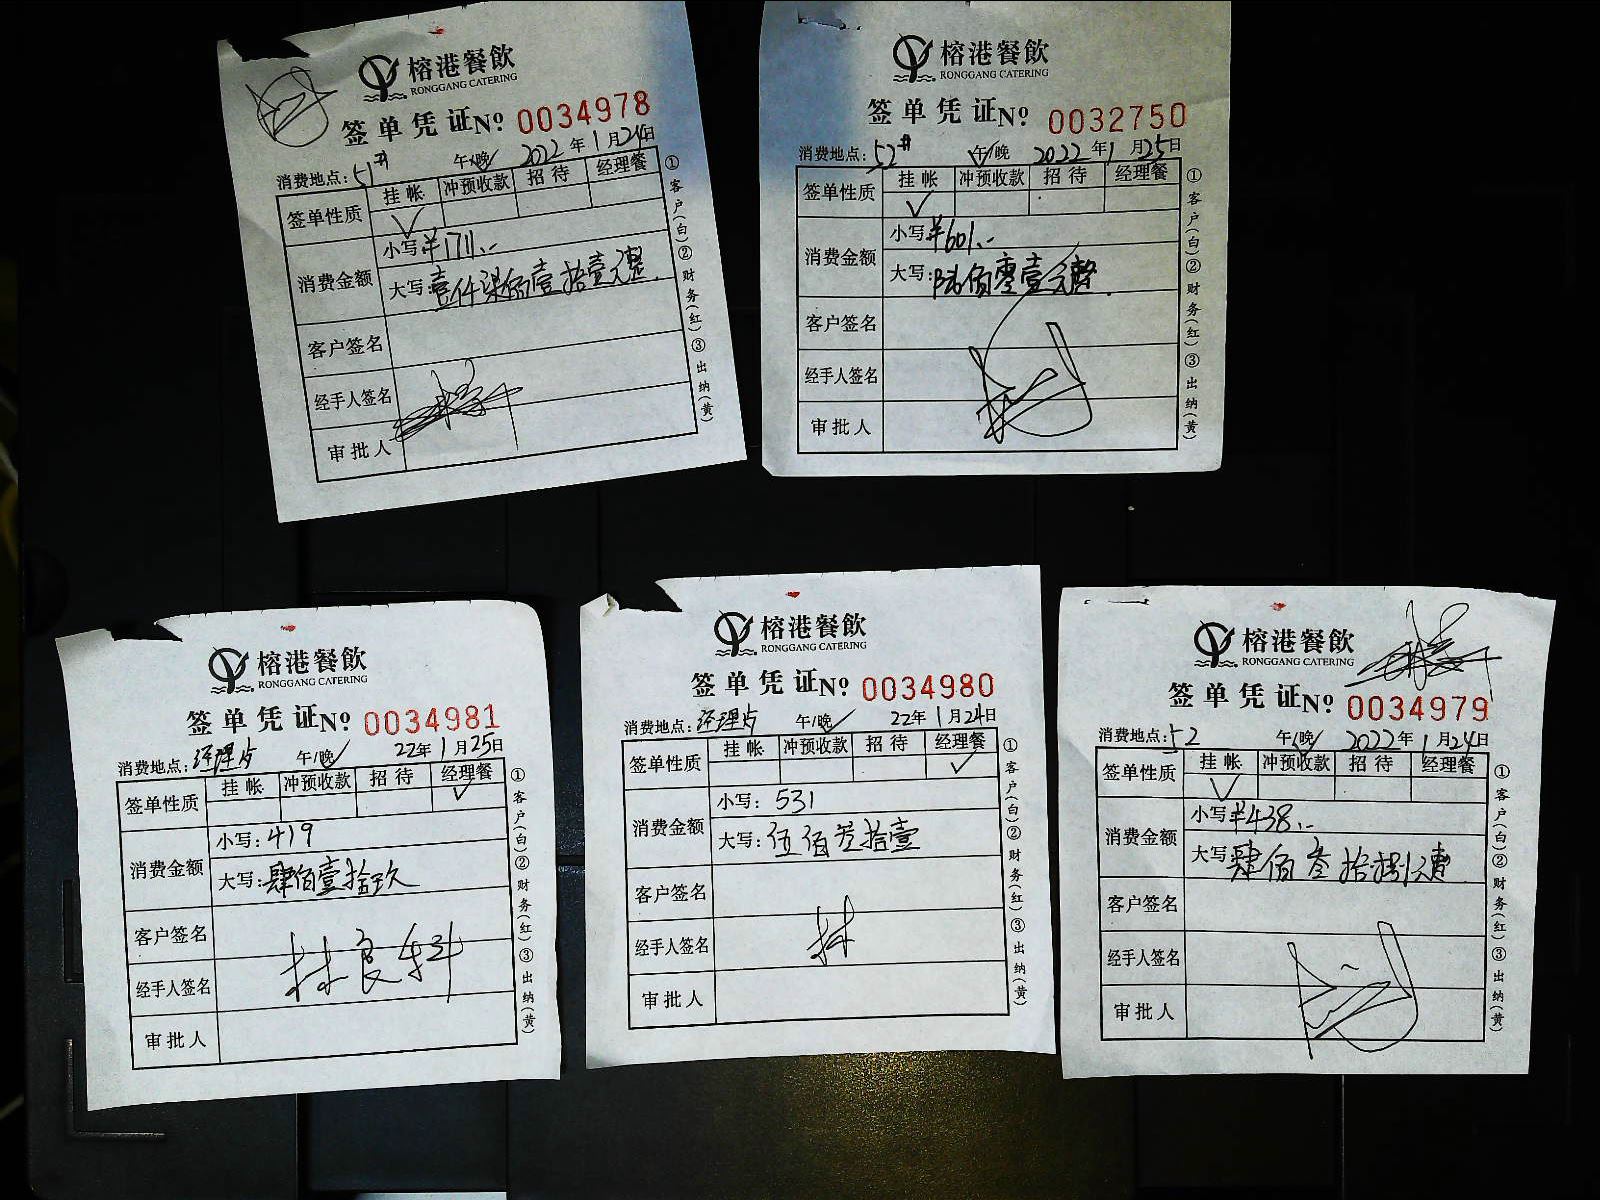 榕港餐飲
RONGGANG CATERING
签单凭证No 0034978
消费地点: 51# 午/晚 2022年1月24日
签单性质 挂帐 冲预收款 招待 经理餐
小写 ¥1711.-
消费金额
大写: 壹仟柒佰壹拾壹元整
客户签名
经手人签名
审批人
①客户(白)②财务(红)③出纳(黄)
榕港餐飲
RONGGANG CATERING
签单凭证No 0032750
消费地点: 52# 午/晚 2022年1月25日
签单性质 挂帐 冲预收款 招待 经理餐
小写 ¥601.-
消费金额
大写: 陆佰零壹元整
客户签名
经手人签名
审批人
①客户(白)②财务(红)③出纳(黄)
榕港餐飲
RONGGANG CATERING
签单凭证No 0034981
消费地点: 经理点 午/晚 22年1月25日
签单性质 挂帐 冲预收款 招待 经理餐
小写: 419
消费金额
大写: 肆佰壹拾玖
客户签名
经手人签名
审批人
①客户(白)②财务(红)③出纳(黄)
榕港餐飲
RONGGANG CATERING
签单凭证No 0034980
消费地点: 经理点 午/晚 22年1月24日
签单性质 挂帐 冲预收款 招待 经理餐
小写: 531
消费金额
大写: 伍佰叁拾壹
客户签名
经手人签名 林
审批人
①客户(白)②财务(红)③出纳(黄)
榕港餐飲
RONGGANG CATERING
签单凭证No 0034979
消费地点: 52 午/晚 2022年1月24日
签单性质 挂帐 冲预收款 招待 经理餐
小写 ¥438.-
消费金额
大写 肆佰叁拾捌元整
客户签名
经手人签名
审批人
①客户(白)②财务(红)③出纳(黄)